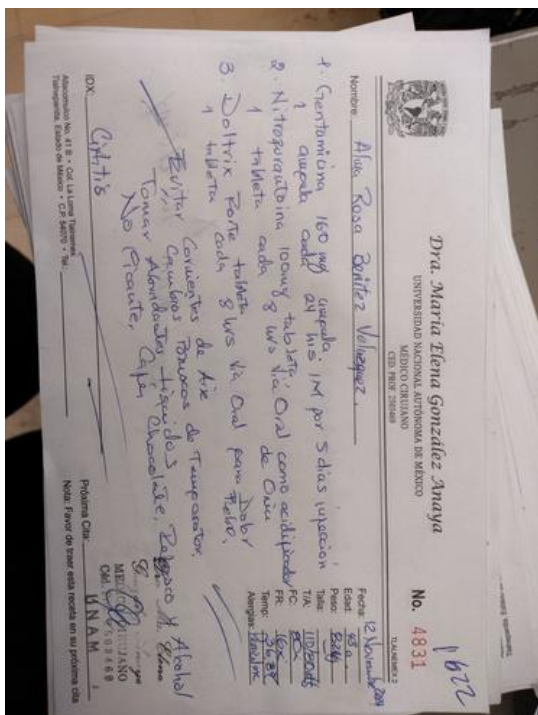 Dra. María Elena González Anaya
UNIVERSIDAD NACIONAL AUTÓNOMA DE MÉXICO
MÉDICO CIRUJANO
CED. PROF. 2503469
1622
No. 4831
TLALNEMEX 2
Nombre: Alma Rosa Benitez Velazquez.
Fecha: 12 Noviembre
Edad: 43 a
Peso:
Talla:
T/A: 110/80
FC:
FR: 16x
Temp: 36.8
Alergias:
1. Gentamicina 160 mg ampula
1 ampula cada 24 hrs IM por 5 dias
2. 100mg tableta
1 tableta cada 8 hrs Via Oral como acidificador de
3. Doltrix Forte tableta
1 tableta cada 8 hrs Via Oral para Dolor
Evitar Corrientes de Aire
Cambios de
Tomar Abundantes Liquidos
No Picante, Café, Chocolate, Refresco y Alcohol
IDX:
Próxima Cita:
MEDICO CIRUJANO
Céd. 2503469
U N A M
Atlacomulco No. 41 B • Col. La Loma Tlalnemex
Tlalnepantla, Estado de México • C.P. 54070 • Tel.:
Nota: Favor de traer esta receta en su próxima cita